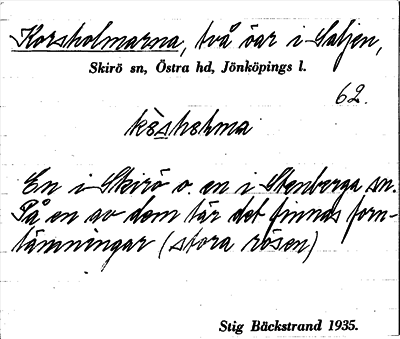 Korsholmarna, två öar i Saljen,
Skirö sn, Östra hd, Jönköpings l.
62.
kɛ̀sholma
En i Skirö o. en i Stenberga sn.
På en av dem lär det finnas forn-
lämningar (stora rösen)
Stig Bäckstrand 1935.